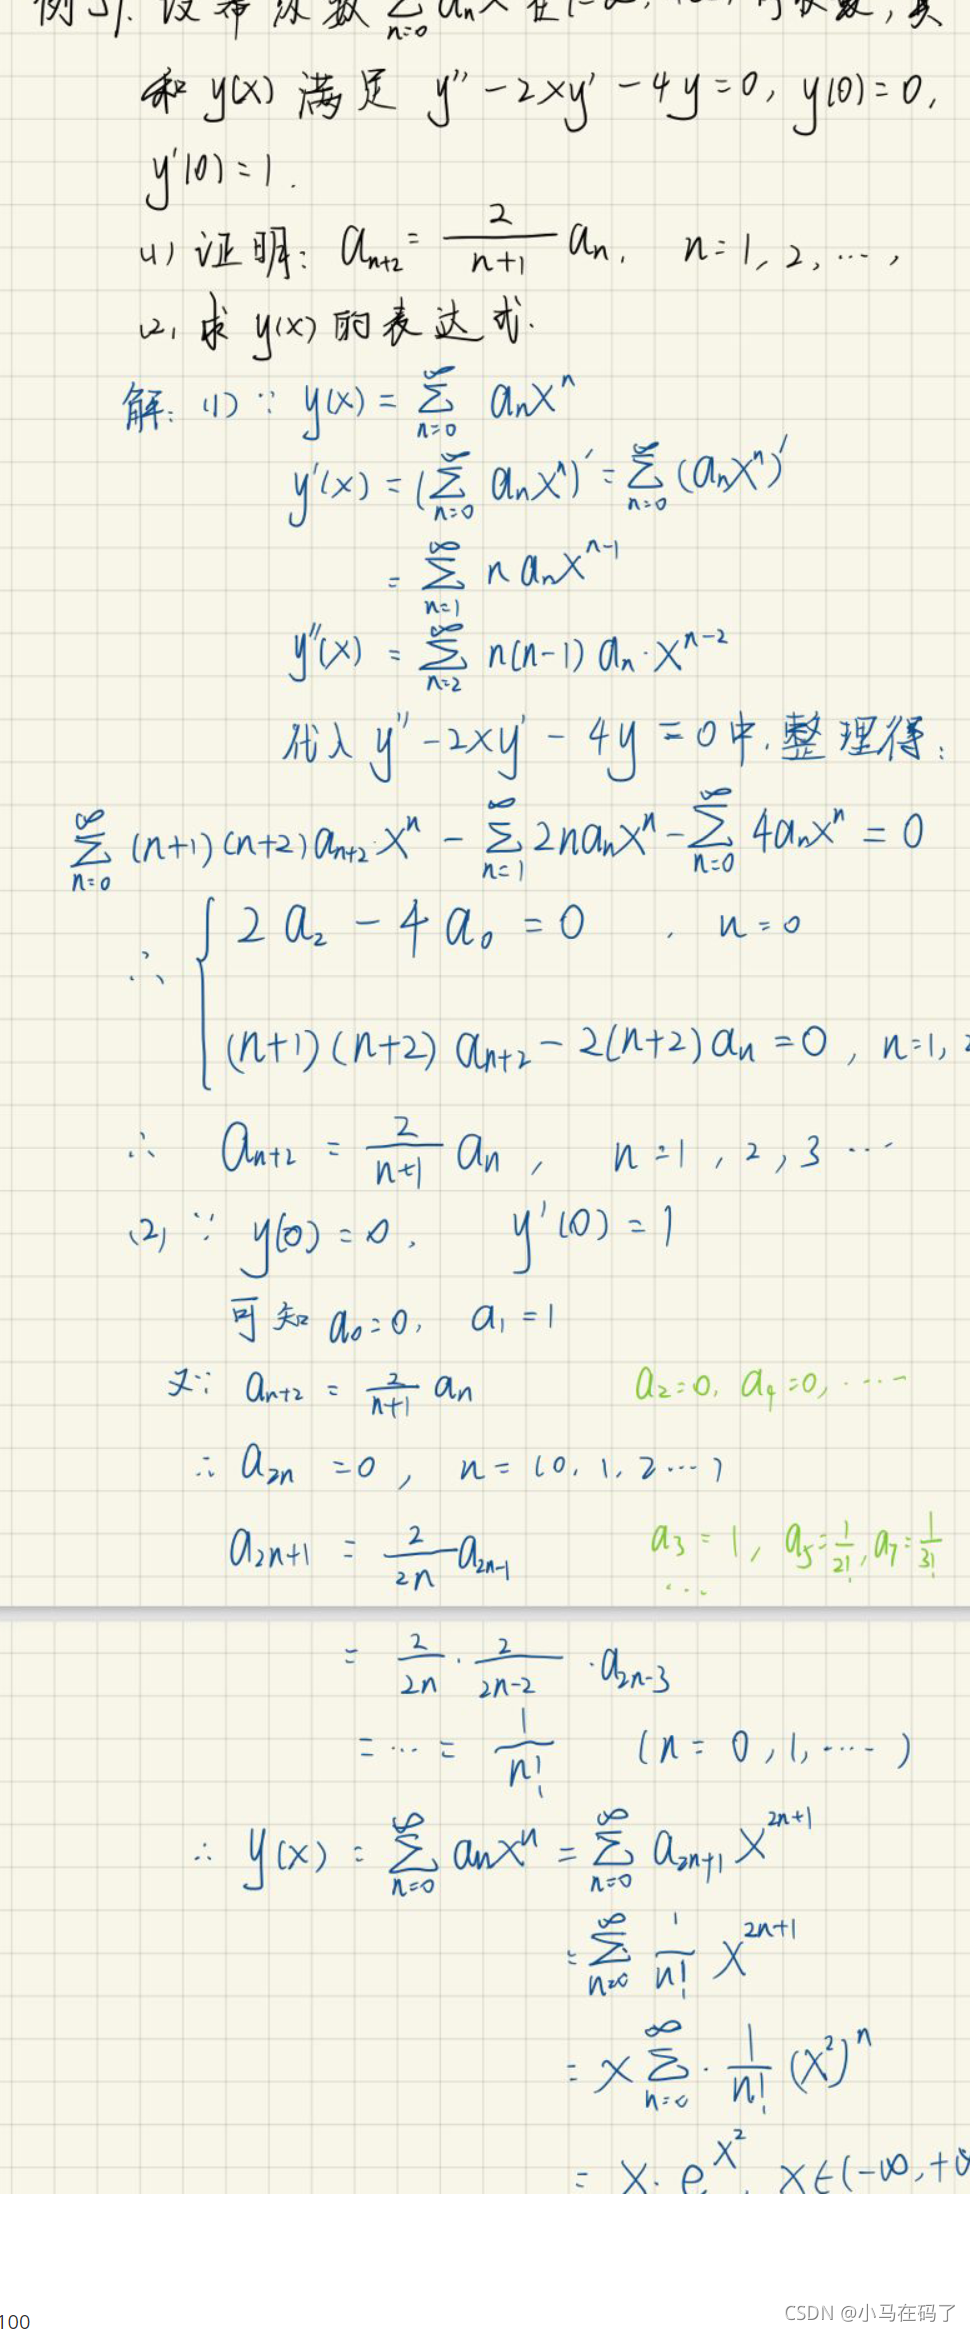 例51. 设幂级数 ∑_{n=0} a_n x^n 在
和 y(x) 满足 y'' - 2xy' - 4y = 0, y(0) = 0,
y'(0) = 1.
(1) 证明: a_{n+2} = \frac{2}{n+1} a_n, n = 1, 2, …,
(2) 求 y(x) 的表达式.
解: (1) ∵ y(x) = ∑_{n=0}^{∞} a_n x^n
y'(x) = (∑_{n=0}^{∞} a_n x^n)' = ∑_{n=0}^{∞} (a_n x^n)'
= ∑_{n=1}^{∞} n a_n x^{n-1}
y''(x) = ∑_{n=2}^{∞} n(n-1) a_n · x^{n-2}
代入 y'' - 2xy' - 4y = 0 中, 整理得:
∑_{n=0}^{∞} (n+1)(n+2) a_{n+2} x^n - ∑_{n=1}^{∞} 2n a_n x^n - ∑_{n=0}^{∞} 4a_n x^n = 0
∴ { 2a_2 - 4a_0 = 0, n = 0
(n+1)(n+2) a_{n+2} - 2(n+2) a_n = 0, n = 1,
∴ a_{n+2} = \frac{2}{n+1} a_n, n = 1, 2, 3 …
(2) ∵ y(0) = 0, y'(0) = 1
可知 a_0 = 0, a_1 = 1
又∵ a_{n+2} = \frac{2}{n+1} a_n a_2 = 0, a_4 = 0, ……
∴ a_{2n} = 0, n = (0, 1, 2 …)
a_{2n+1} = \frac{2}{2n} a_{2n-1} a_3 = 1, a_5 = \frac{1}{2!}, a_7 = \frac{1}{3!}
…
= \frac{2}{2n} · \frac{2}{2n-2} · a_{2n-3}
= … = \frac{1}{n!} (n = 0, 1, ……)
∴ y(x) = ∑_{n=0}^{∞} a_n x^n = ∑_{n=0}^{∞} a_{2n+1} x^{2n+1}
= ∑_{n=0}^{∞} \frac{1}{n!} x^{2n+1}
= x ∑_{n=0}^{∞} · \frac{1}{n!} (x^2)^n
= x · e^{x^2}, x ∈ (-∞, +∞
100
CSDN @小马在码了